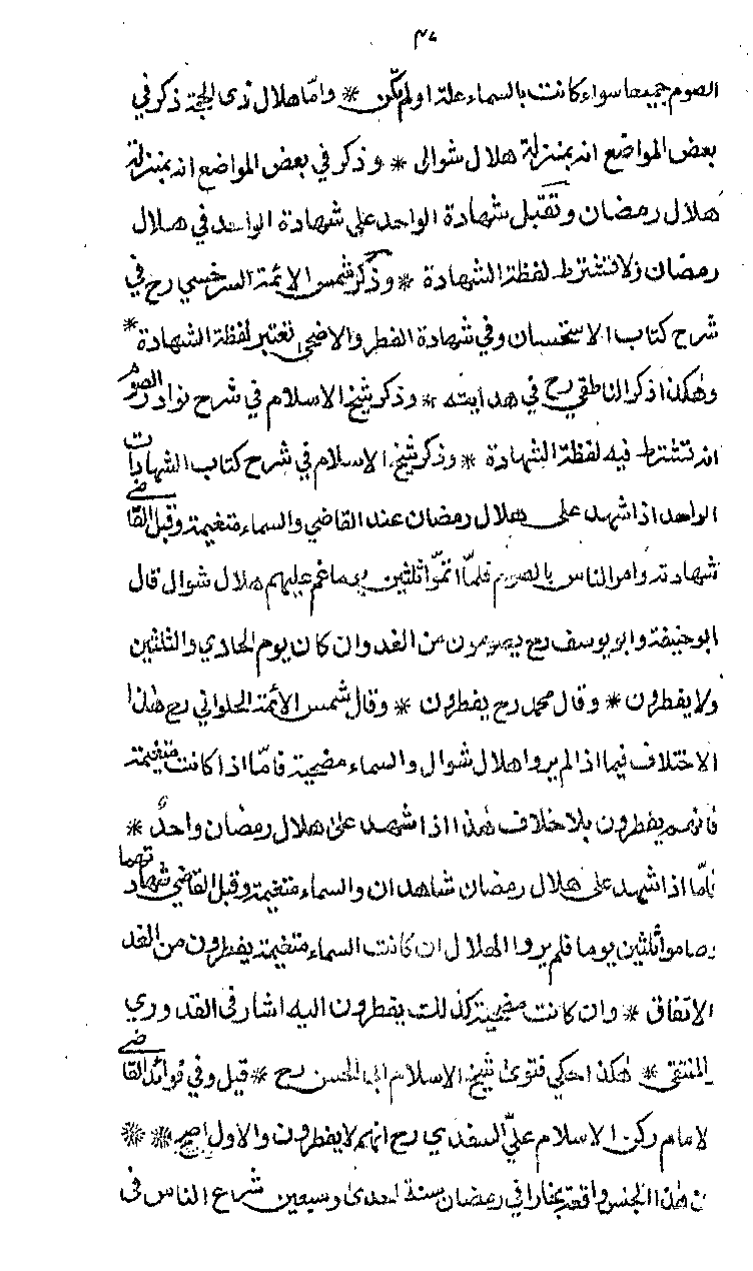 ٣٨
الصوم جميعا سواء كانت بالسماء علة او لم يكن * واما هلال ذى الحجة ذكر في
بعض المواضع انه بمنزلة هلال شوال * وذكر في بعض المواضع انه بمنزلة
هلال رمضان وتقبل شهادة الواحد على شهادة الواحد في هلال
رمضان ولا تشترط لفظة الشهادة * وذكر شمس الائمة السرخسي رح في
شرح كتاب الاستحسان وفي شهادة الفطر والاضحى تعتبر لفظة الشهادة *
وهكذا ذكر الناطقي رح في هدايته * وذكر شيخ الاسلام في شرح نوادر الصوم
انه تشترط فيه لفظة الشهادة * وذكر شيخ الاسلام في شرح كتاب الشهادات
الواحد اذا شهد على هلال رمضان عند القاضي والسماء متغيمة وقبل القاضي
شهادته وامر الناس بالصوم فلمّا اتمّوا ثلثين يوما غم عليهم هلال شوال قال
ابو حنيفة وابو يوسف رح يصومون من الغد وان كان يوم الحادي والثلثين
ولا يفطرون * وقال محمد رح يفطرون * وقال شمس الأئمة الحلواني رح هذا
الاختلاف فيما اذا لم يروا هلال شوال والسماء مضحية فامّا اذا كانت متغيمة
فانهم يفطرون بلا خلاف هذا اذا شهد على هلال رمضان واحدٌ *
فامّا اذا شهد على هلال رمضان شاهدان والسماء متغيمة وقبل القاضي شهادتهما
وصاموا ثلثين يوما فلم يروا الهلال ان كانت السماء متغيمة يفطرون من الغد
الاتفاق * وان كانت مضحية كذلك يفطرون اليه اشار في القدوري
المنتقى * هكذا حكي فتوى شيخ الاسلام ابي الحسن رح * قيل وفي فوائد القاضي
لامام ركن الاسلام عليّ السغدي رح انهم لا يفطرون والاول اصح * *
ن هذا الجنس واقعة بخارا في رمضان سنة احدى وسبعين شراع الناس في